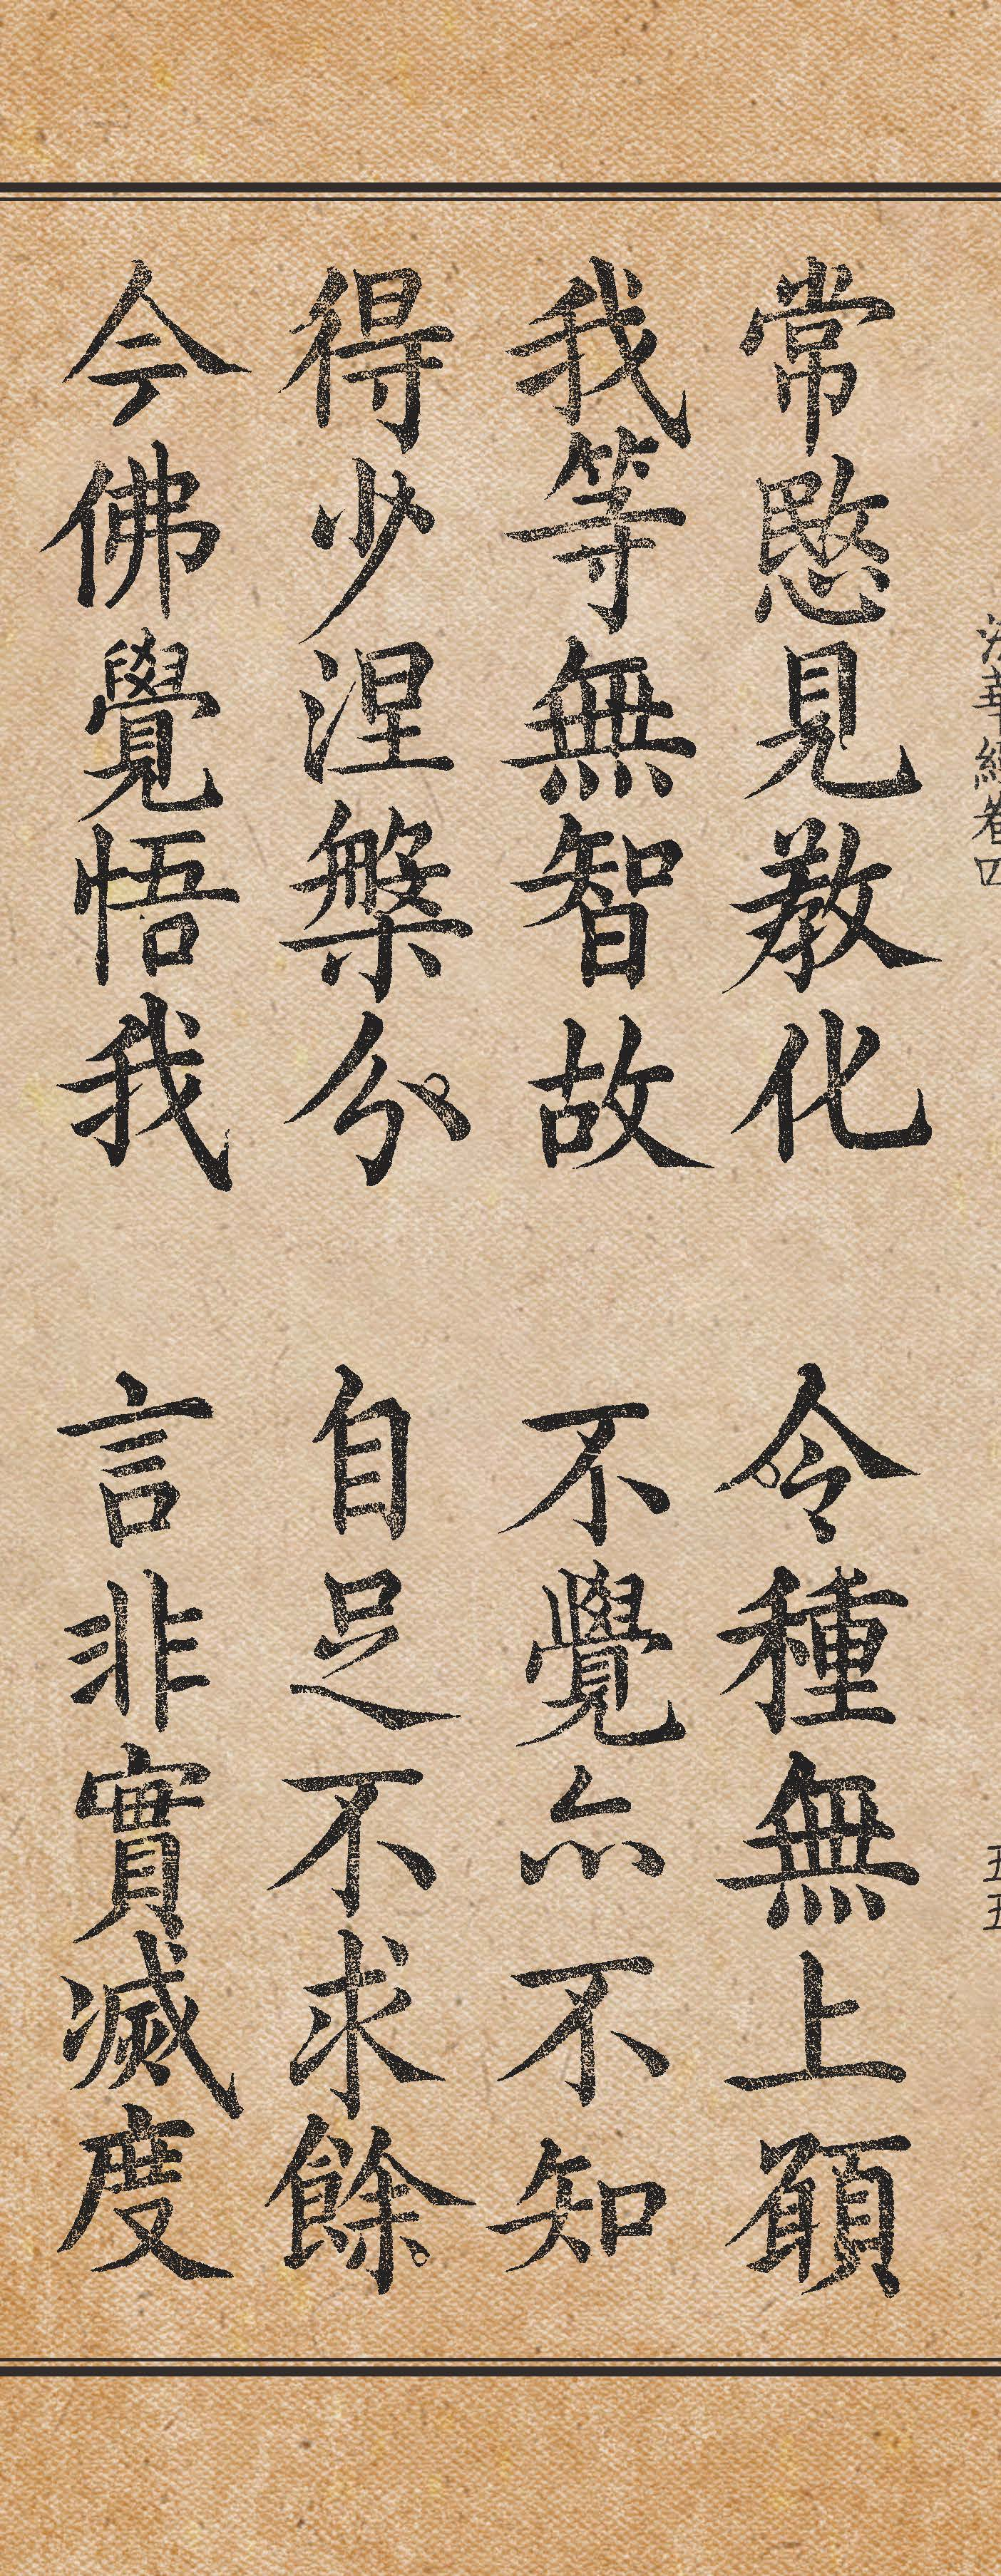 法華經卷四
五五
常愍見教化 令種無上願
我等無智故 不覺亦不知
得少涅槃分 自足不求餘
今佛覺悟我 言非實滅度